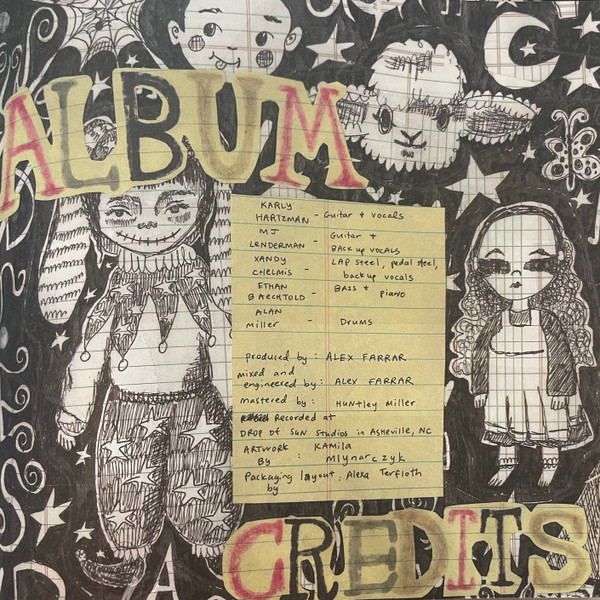 ALBUM
KARLY
HARTZMAN - Guitar + vocals
MJ
LENDERMAN - Guitar +
BACK UP VOCALS
XANDY
CHELMIS - LAP steel, pedal steel,
back up vocals
ETHAN
BAECHTOLD - BASS + piano
ALAN
Miller - Drums
produced by : ALEX FARRAR
mixed and
engineered by : ALEX FARRAR
mastered by : HUNtley Miller
Recorded at
DROP OF SUN Studios in ASHEVILLE, NC
ARTWORK KAMILA
By : Mlynarczyk
Packaging layout : Alexa Terfloth
by
CREDITS